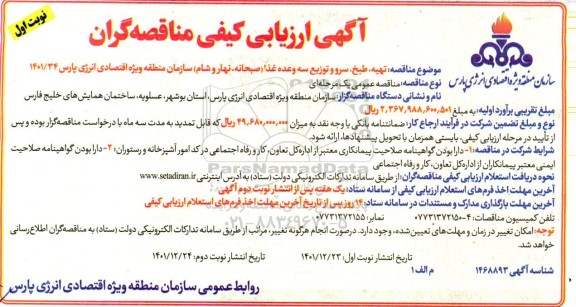 نوبت اول
آگهی ارزیابی کیفی مناقصه‌گران
سازمان منطقه ویژه اقتصادی انرژی پارس
موضوع مناقصه: تهیه، طبخ، سرو و توزیع سه وعده غذا (صبحانه، نهار و شام) سازمان منطقه ویژه اقتصادی انرژی پارس ۱۴۰۱/۳۴
نوع مناقصه: مناقصه عمومی یک مرحله‌ای
نام و نشانی دستگاه مناقصه‌گزار: سازمان منطقه ویژه اقتصادی انرژی پارس، استان بوشهر، عسلویه، ساختمان همایش‌های خلیج فارس
مبلغ تقریبی برآورد اولیه: به مبلغ ۲,۳۶۷,۹۸۸,۶۰۰,۵۰۱ ریال
نوع و مبلغ تضمین شرکت در فرآیند ارجاع کار: ضمانتنامه بانکی یا وجه نقد به میزان ۴۹,۶۸۰,۰۰۰,۰۰۰ ریال که قابل تمدید به مدت سه ماه با درخواست مناقصه‌گزار بوده و پس
از تأیید در مرحله ارزیابی کیفی، بایستی همزمان با تحویل پیشنهادها، ارائه شود.
شرایط شرکت در مناقصه: ۱- دارا بودن گواهینامه صلاحیت پیمانکاری معتبر از اداره کل تعاون، کار و رفاه اجتماعی در کد امور آشپزخانه و رستوران؛ ۲- دارا بودن گواهینامه صلاحیت
ایمنی معتبر پیمانکاران از اداره کل تعاون، کار و رفاه اجتماعی
نحوه دریافت استعلام ارزیابی کیفی مناقصه‌گران: از طریق سامانه تدارکات الکترونیکی دولت (ستاد) به آدرس اینترنتی www.setadiran.ir
آخرین مهلت اخذ فرم‌های استعلام ارزیابی کیفی از سامانه ستاد: یک هفته پس از انتشار نوبت دوم آگهی
آخرین مهلت بارگذاری مدارک و مستندات در سامانه ستاد: ۱۴ روز پس از تاریخ آخرین مهلت اخذ فرم‌های استعلام ارزیابی کیفی
تلفن کمیسیون مناقصات: ۴-۰۷۷۳۱۳۷۲۱۵۰ نمابر: ۰۷۷۳۱۳۷۲۱۵۵
توجه: امکان تغییر در زمان و مهلت‌های تعیین‌شده، وجود دارد. درصورت انجام هرگونه تغییر، مراتب از طریق سامانه تدارکات الکترونیکی دولت (ستاد) به مناقصه‌گران اطلاع‌رسانی
خواهد شد.
تاریخ انتشار نوبت اول: ۱۴۰۱/۱۲/۲۳ تاریخ انتشار نوبت دوم: ۱۴۰۱/۱۲/۲۴
شناسه آگهی ۱۴۶۸۸۹۳ م الف ۱
روابط عمومی سازمان منطقه ویژه اقتصادی انرژی پارس